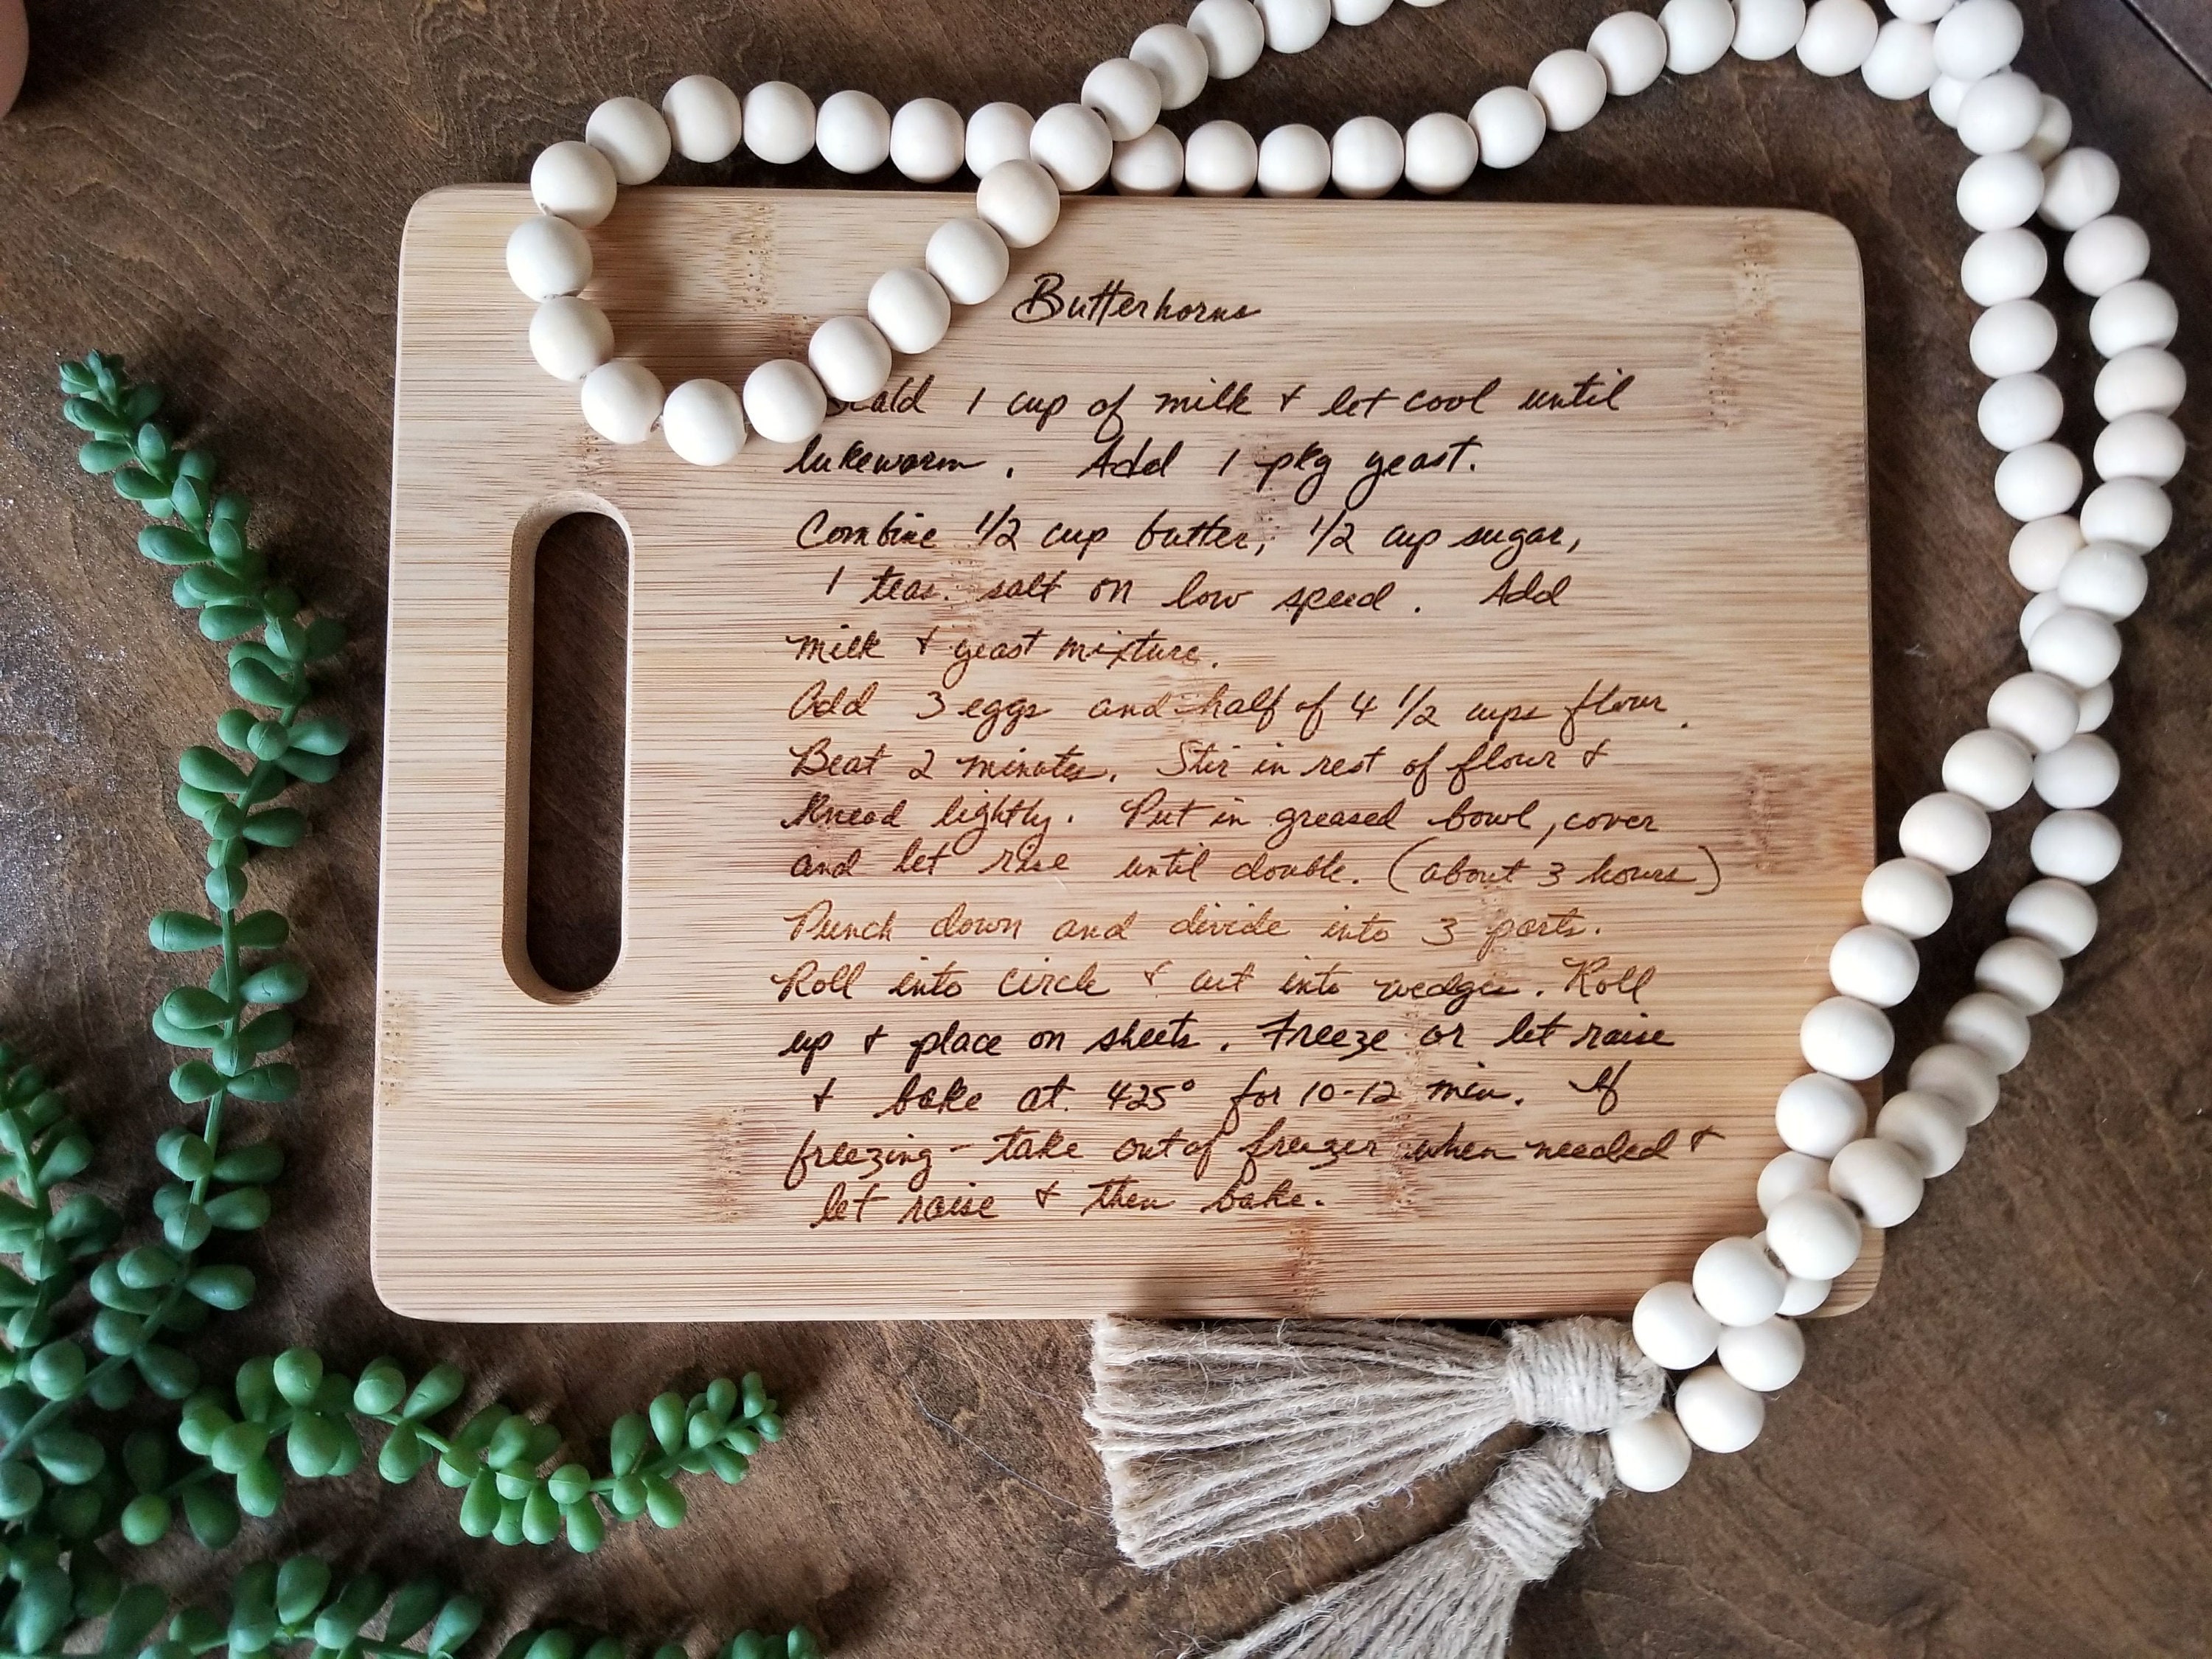 Butterhorns
Scald 1 cup of milk + let cool until
lukewarm. Add 1 pkg yeast.
Combine 1/2 cup butter, 1/2 cup sugar,
1 teas. salt on low speed. Add
milk + yeast mixture.
Add 3 eggs and half of 4 1/2 cups flour.
Beat 2 minutes. Stir in rest of flour +
Knead lightly. Put in greased bowl, cover
and let rise until double. (about 3 hours)
Punch down and divide into 3 parts.
Roll into circle + cut into wedges. Roll
up + place on sheets. Freeze or let raise
+ bake at. 425° for 10-12 min. If
freezing - take out of freezer when needed +
let raise + then bake.